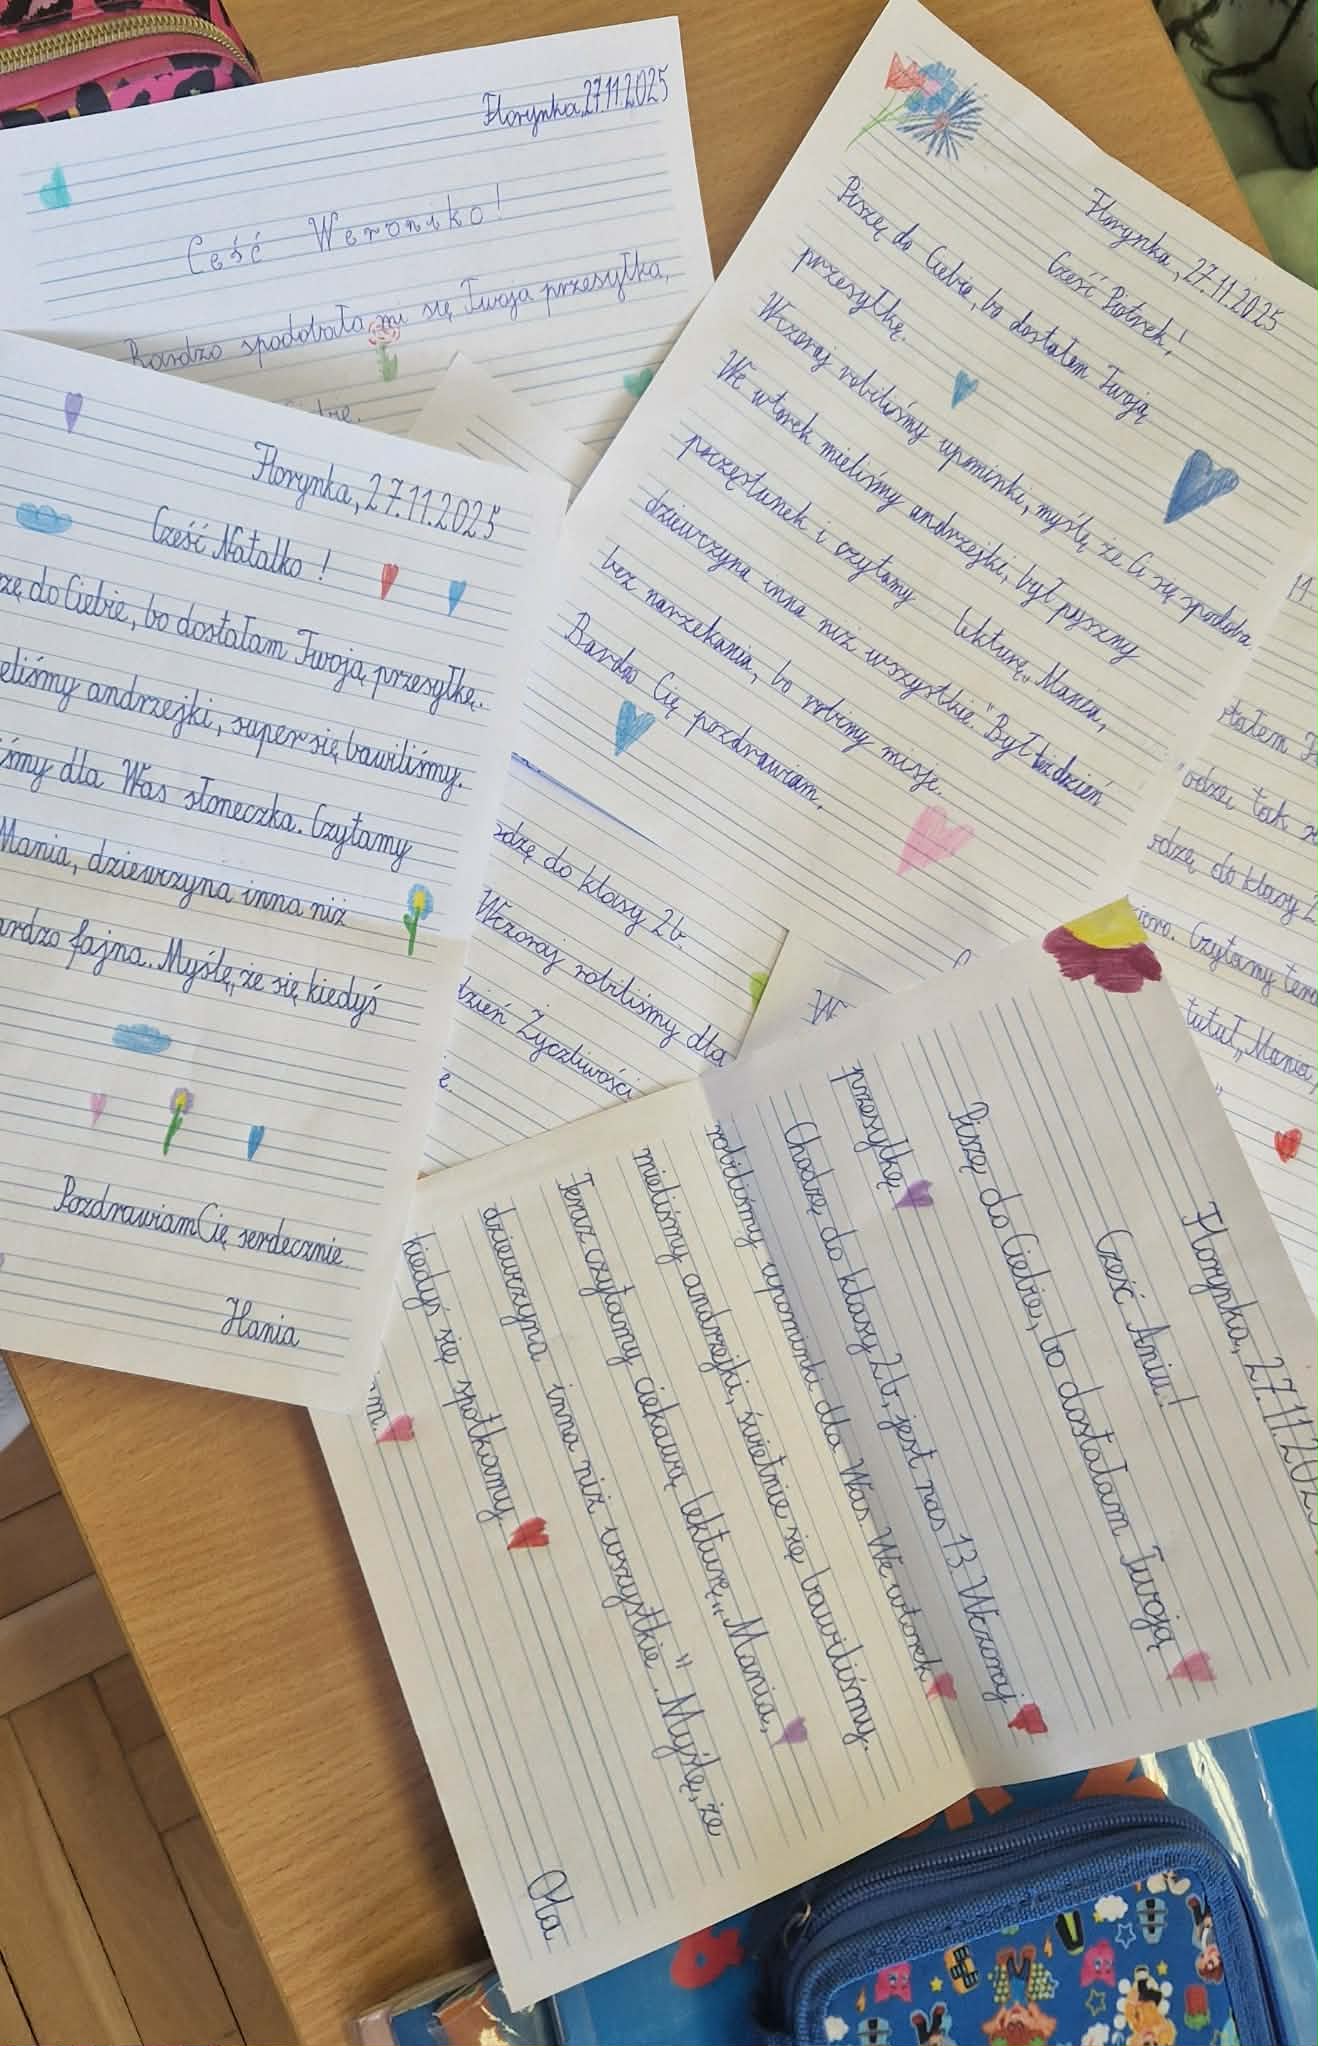 Florynka, 27.11.2025
Ceść Weroniko!
Bardzo spodobała mi się Twoja przesyłka,
Florynka, 27.11.2025
Cześć Piotrek!
Piszę do Ciebie, bo dostałem Twoją
przesyłkę.
Wczoraj robiliśmy upominki, myślę że Ci się spodoba
We wtorek mieliśmy andrzejki, był pyszny
poczęstunek i czytamy lekturę „Mania,
dziewczyna inna niż wszystkie." Był też dzień
bez narzekania, bo robimy misje.
Bardzo Cię pozdrawiam,
Florynka, 27.11.2025
Cześć Natalko!
do Ciebie, bo dostałam Twoją przesyłkę.
andrzejki, super się bawiliśmy.
dla Was słoneczka. Czytamy
Mania, dziewczyna inna niż
fajna. Myślę, że się kiedyś
Pozdrawiam Cię serdecznie
Hania
do klasy 2b.
Wczoraj robiliśmy dla
dzień Życzliwości
tak
do klasy
Czytamy
tutuł „Mania,
Florynka, 27.11.202
Cześć Aniu!
Piszę do Ciebie, bo dostałam Twoją
przesyłkę.
Chodzę do klasy 2b, jest nas 13. Wczoraj
robiliśmy upominki dla Was. We wtorek
mieliśmy andrzejki, świetnie się bawiliśmy.
Teraz czytamy ciekawą lekturę „Mania,
dziewczyna inna niż wszystkie". Myślę, że
kiedyś się spotkamy.
Ola